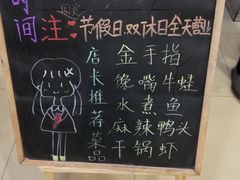 时间
注:节假日.双休日全天营业
店长推荐菜品
金手指
馋嘴牛蛙
水煮鱼
麻辣鸭头
干锅虾